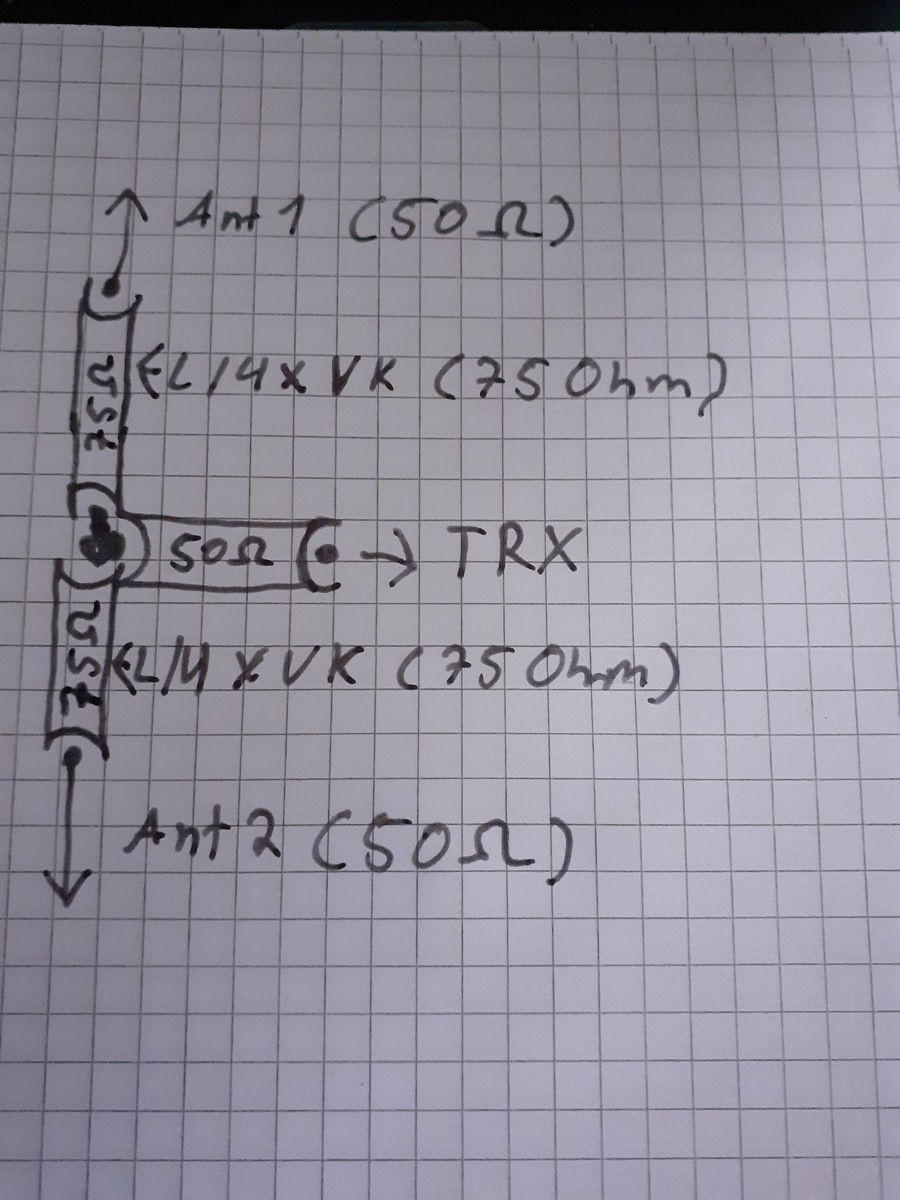 Ant 1 (50 Ω)
75Ω
EL/4 x VK (75 Ohm)
50Ω → TRX
75Ω
EL/4 x VK (75 Ohm)
Ant 2 (50 Ω)